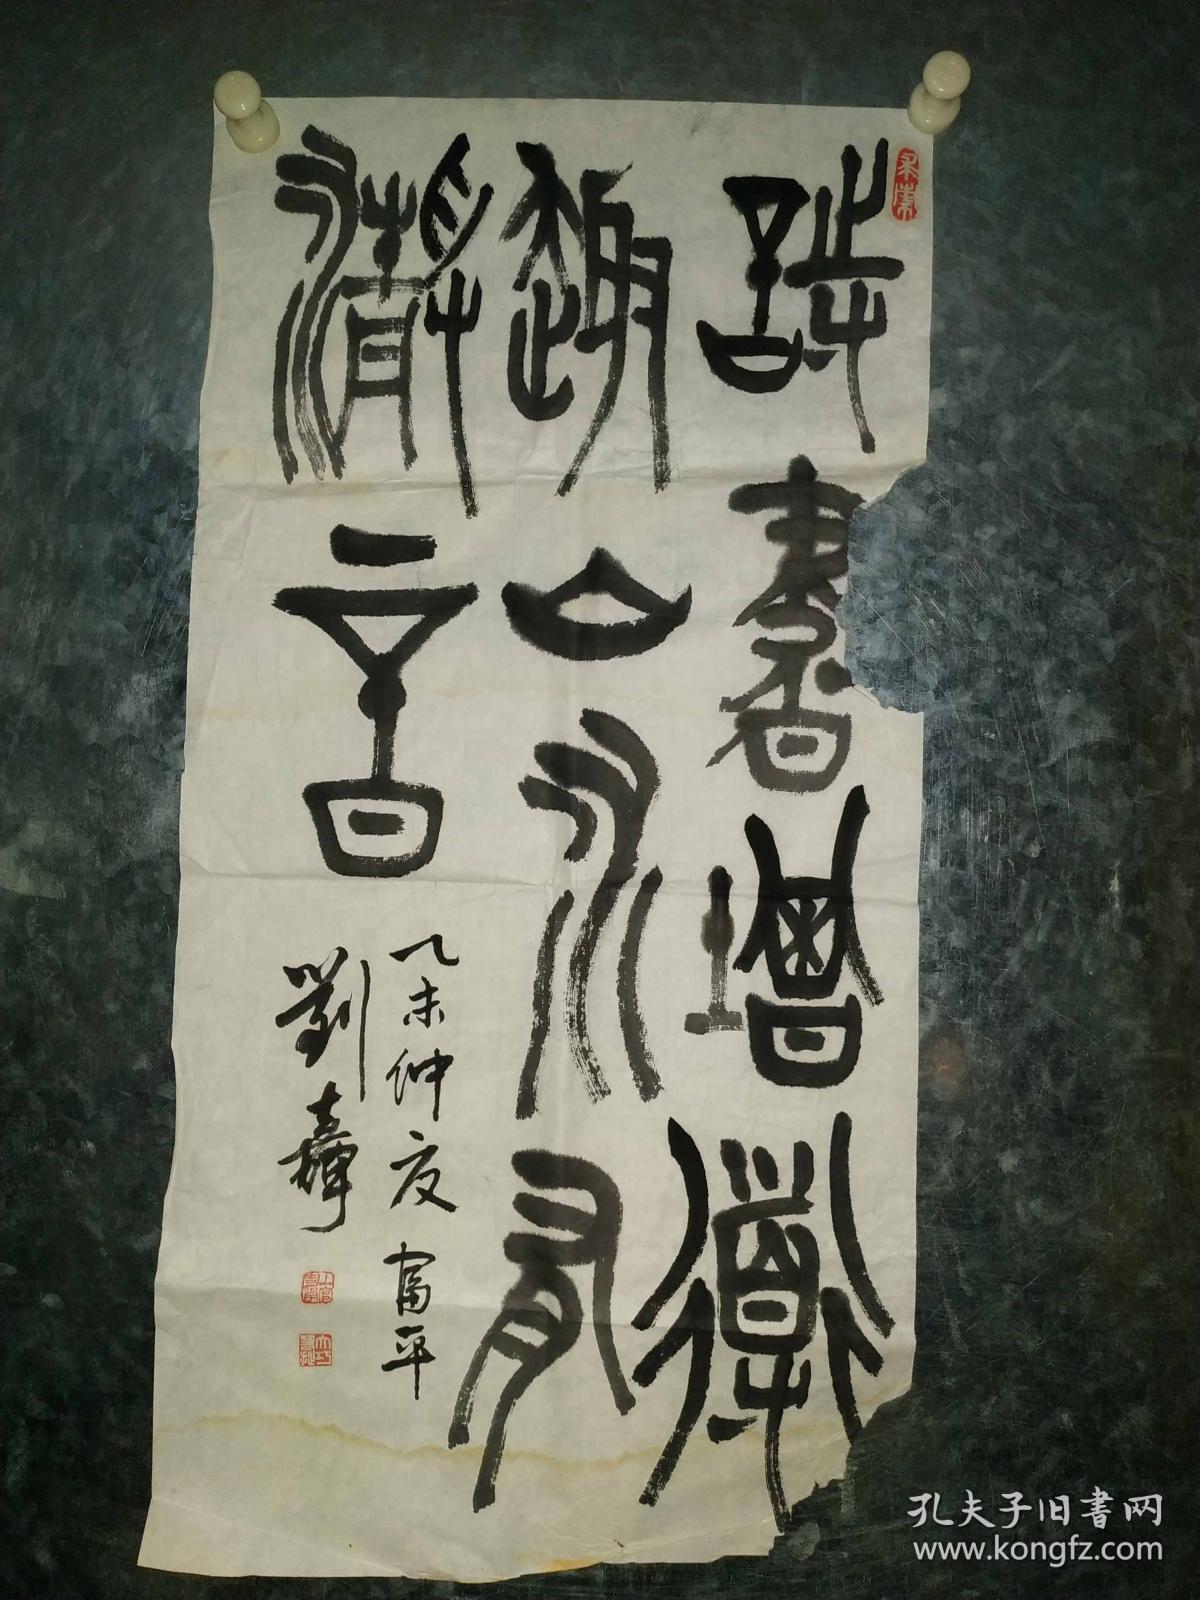 詩書增道
趣山水有
清音
乙未仲夏富平
劉嘉
孔夫子旧書网
www.kongfz.com